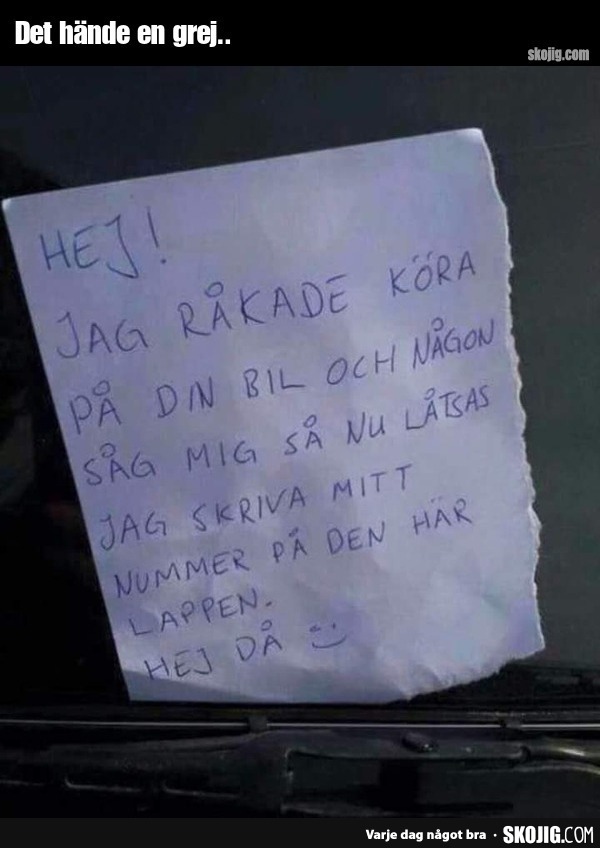 Det hände en grej..
skojig.com
HEJ!
JAG RÅKADE KÖRA
PÅ DIN BIL OCH NÅGON
SÅG MIG SÅ NU LÅTSAS
JAG SKRIVA MITT
NUMMER PÅ DEN HÄR
LAPPEN.
HEJ DÅ :)
Varje dag något bra · SKOJIG.COM